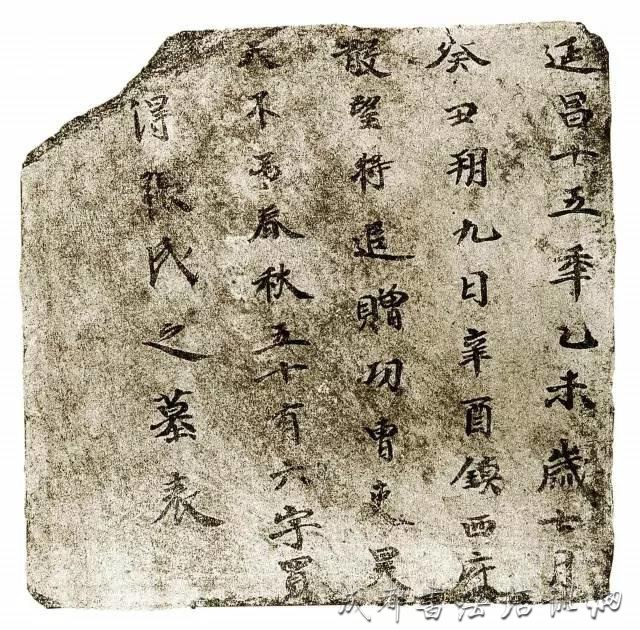 延昌十五年乙未歲七月
癸丑朔九日辛酉鎮西府
散望將追贈功曹吏昊
天不弔春秋五十有六字買
得張氏之墓表
成都書法培訓網